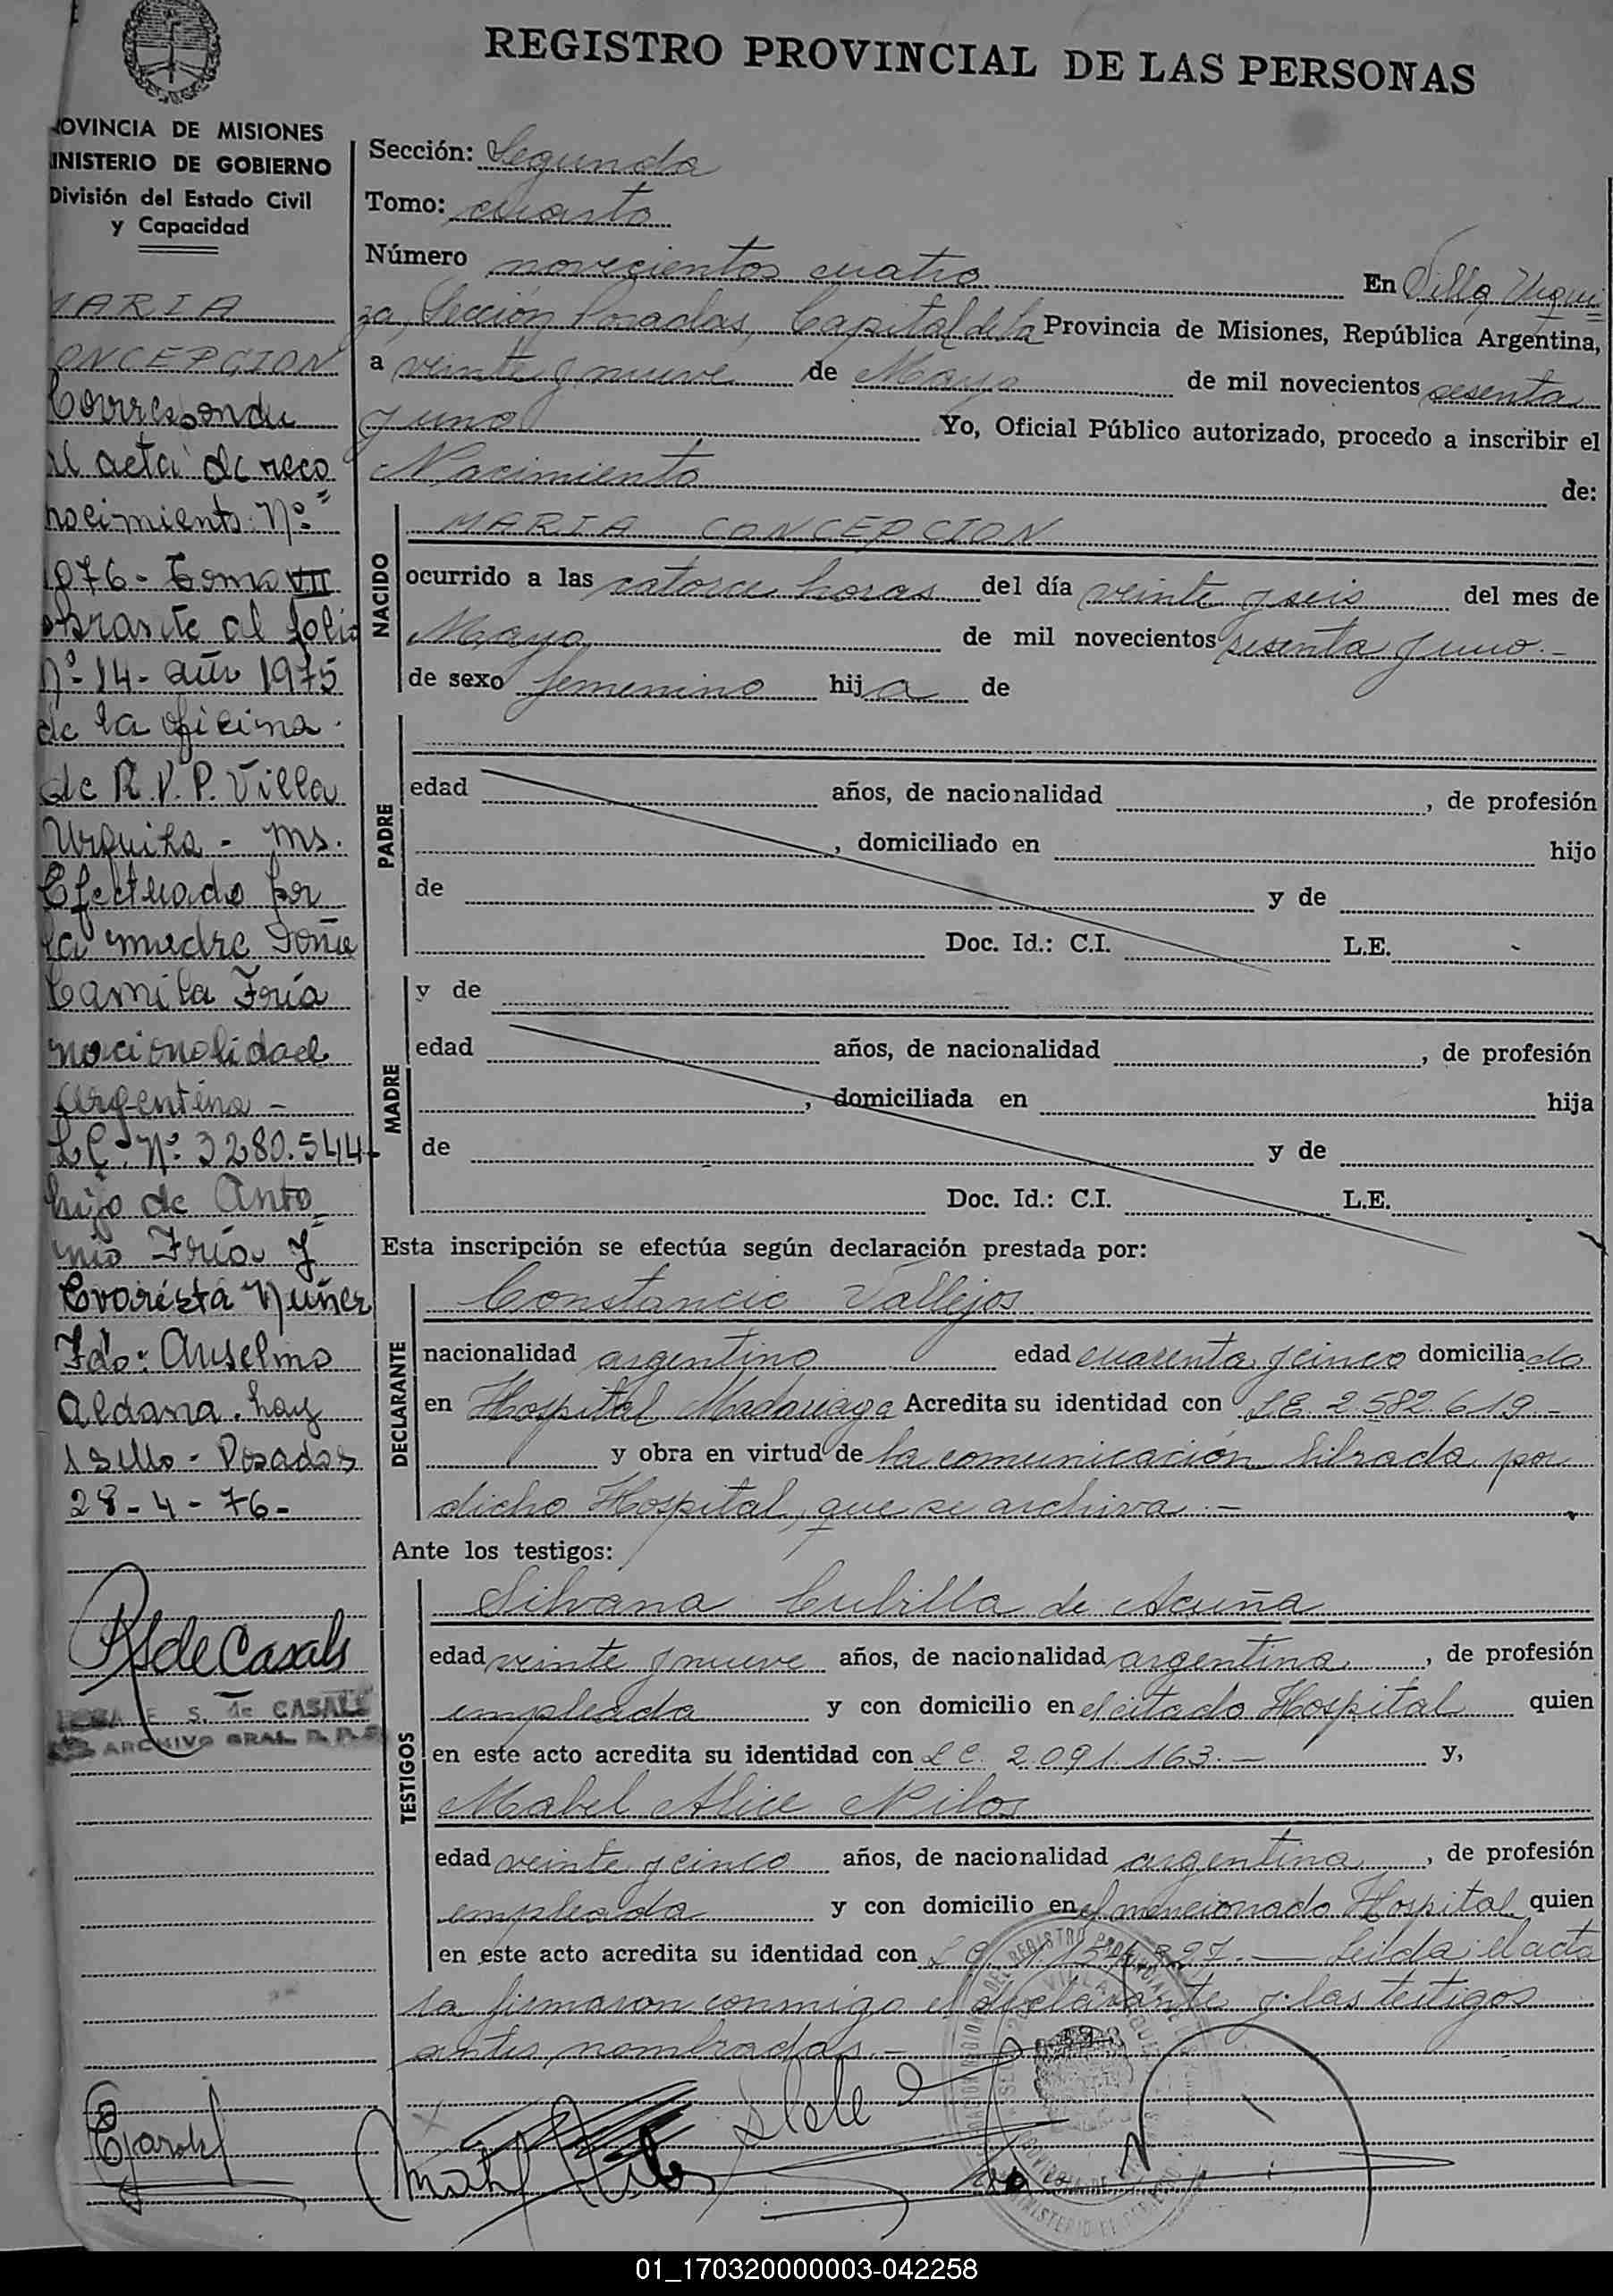 REGISTRO PROVINCIAL DE LAS PERSONAS
OVINCIA DE MISIONES
INISTERIO DE GOBIERNO
División del Estado Civil
y Capacidad
ARIA
ONCEPCION
Corresponde
al acta de reco
nocimiento Nº
1076 - Tomo VII
obrante al folio
Nº 14 - año 1975
de la oficina
de R. P. P. Villa
Urquiza - Ms.
Efectuado por
la madre Doña
Camila Fría
nacionalidad
argentina -
L.C. Nº 3280.544 -
hija de Anto
nio Fría y
Evarista Nuñez
Fdo: Anselmo
Aldana. hay
1 sello - Posadas
28 - 4 - 76 -
S. de CASALS
ARCHIVO GRAL. R. P. P.
Sección: Segunda
Tomo: cuarto
Número novecientos cuatro En Villa Urqui
za, Sección Posadas, Capital de la Provincia de Misiones, República Argentina,
a veinte y nueve de Mayo de mil novecientos sesenta
y uno Yo, Oficial Público autorizado, procedo a inscribir el
Nacimiento de:
NACIDO
MARIA CONCEPCION
ocurrido a las catorce horas del día veinte y seis del mes de
Mayo de mil novecientos sesenta y uno.-
de sexo femenino hija de
PADRE
edad años, de nacionalidad , de profesión
, domiciliado en hijo
de y de
Doc. Id.: C.I. L.E.
MADRE
y de
edad años, de nacionalidad , de profesión
, domiciliada en hija
de y de
Doc. Id.: C.I. L.E.
Esta inscripción se efectúa según declaración prestada por:
DECLARANTE
Constancio Vallejos
nacionalidad argentino edad cuarenta y cinco domiciliado
en Hospital Madariaga Acredita su identidad con L.E. 2.582.619.-
y obra en virtud de la comunicación librada por
dicho Hospital, que se archiva.-
Ante los testigos:
TESTIGOS
Silvana Cubilla de Acuña
edad veinte y nueve años, de nacionalidad argentina , de profesión
empleada y con domicilio en el citado Hospital quien
en este acto acredita su identidad con L.C. 2.091.163.- y,
Mabel Alice Nilos
edad veinte y cinco años, de nacionalidad argentina , de profesión
empleada y con domicilio en el mencionado Hospital quien
en este acto acredita su identidad con Leída el acta
la firmaron conmigo el declarante y las testigos
antes nombradas.-
01_170320000003-042258